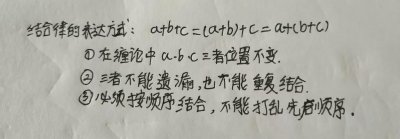 结合律的表达方式: a+b+c=(a+b)+c=a+(b+c)
①在缠论中a·b·c三者位置不变.
②三者不能遗漏,也不能重复结合.
③必须按顺序结合,不能打乱先后顺序.